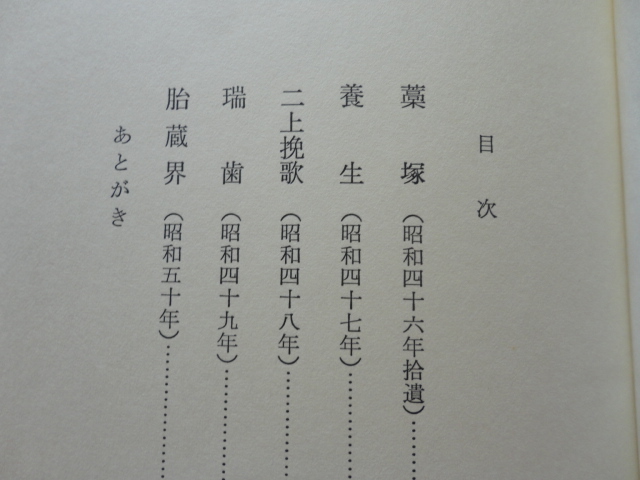 目次
藁塚（昭和四十六年拾遺）…………
養生（昭和四十七年）…………
二上挽歌（昭和四十八年）…………
瑞歯（昭和四十九年）…………
胎蔵界（昭和五十年）…………
あとがき